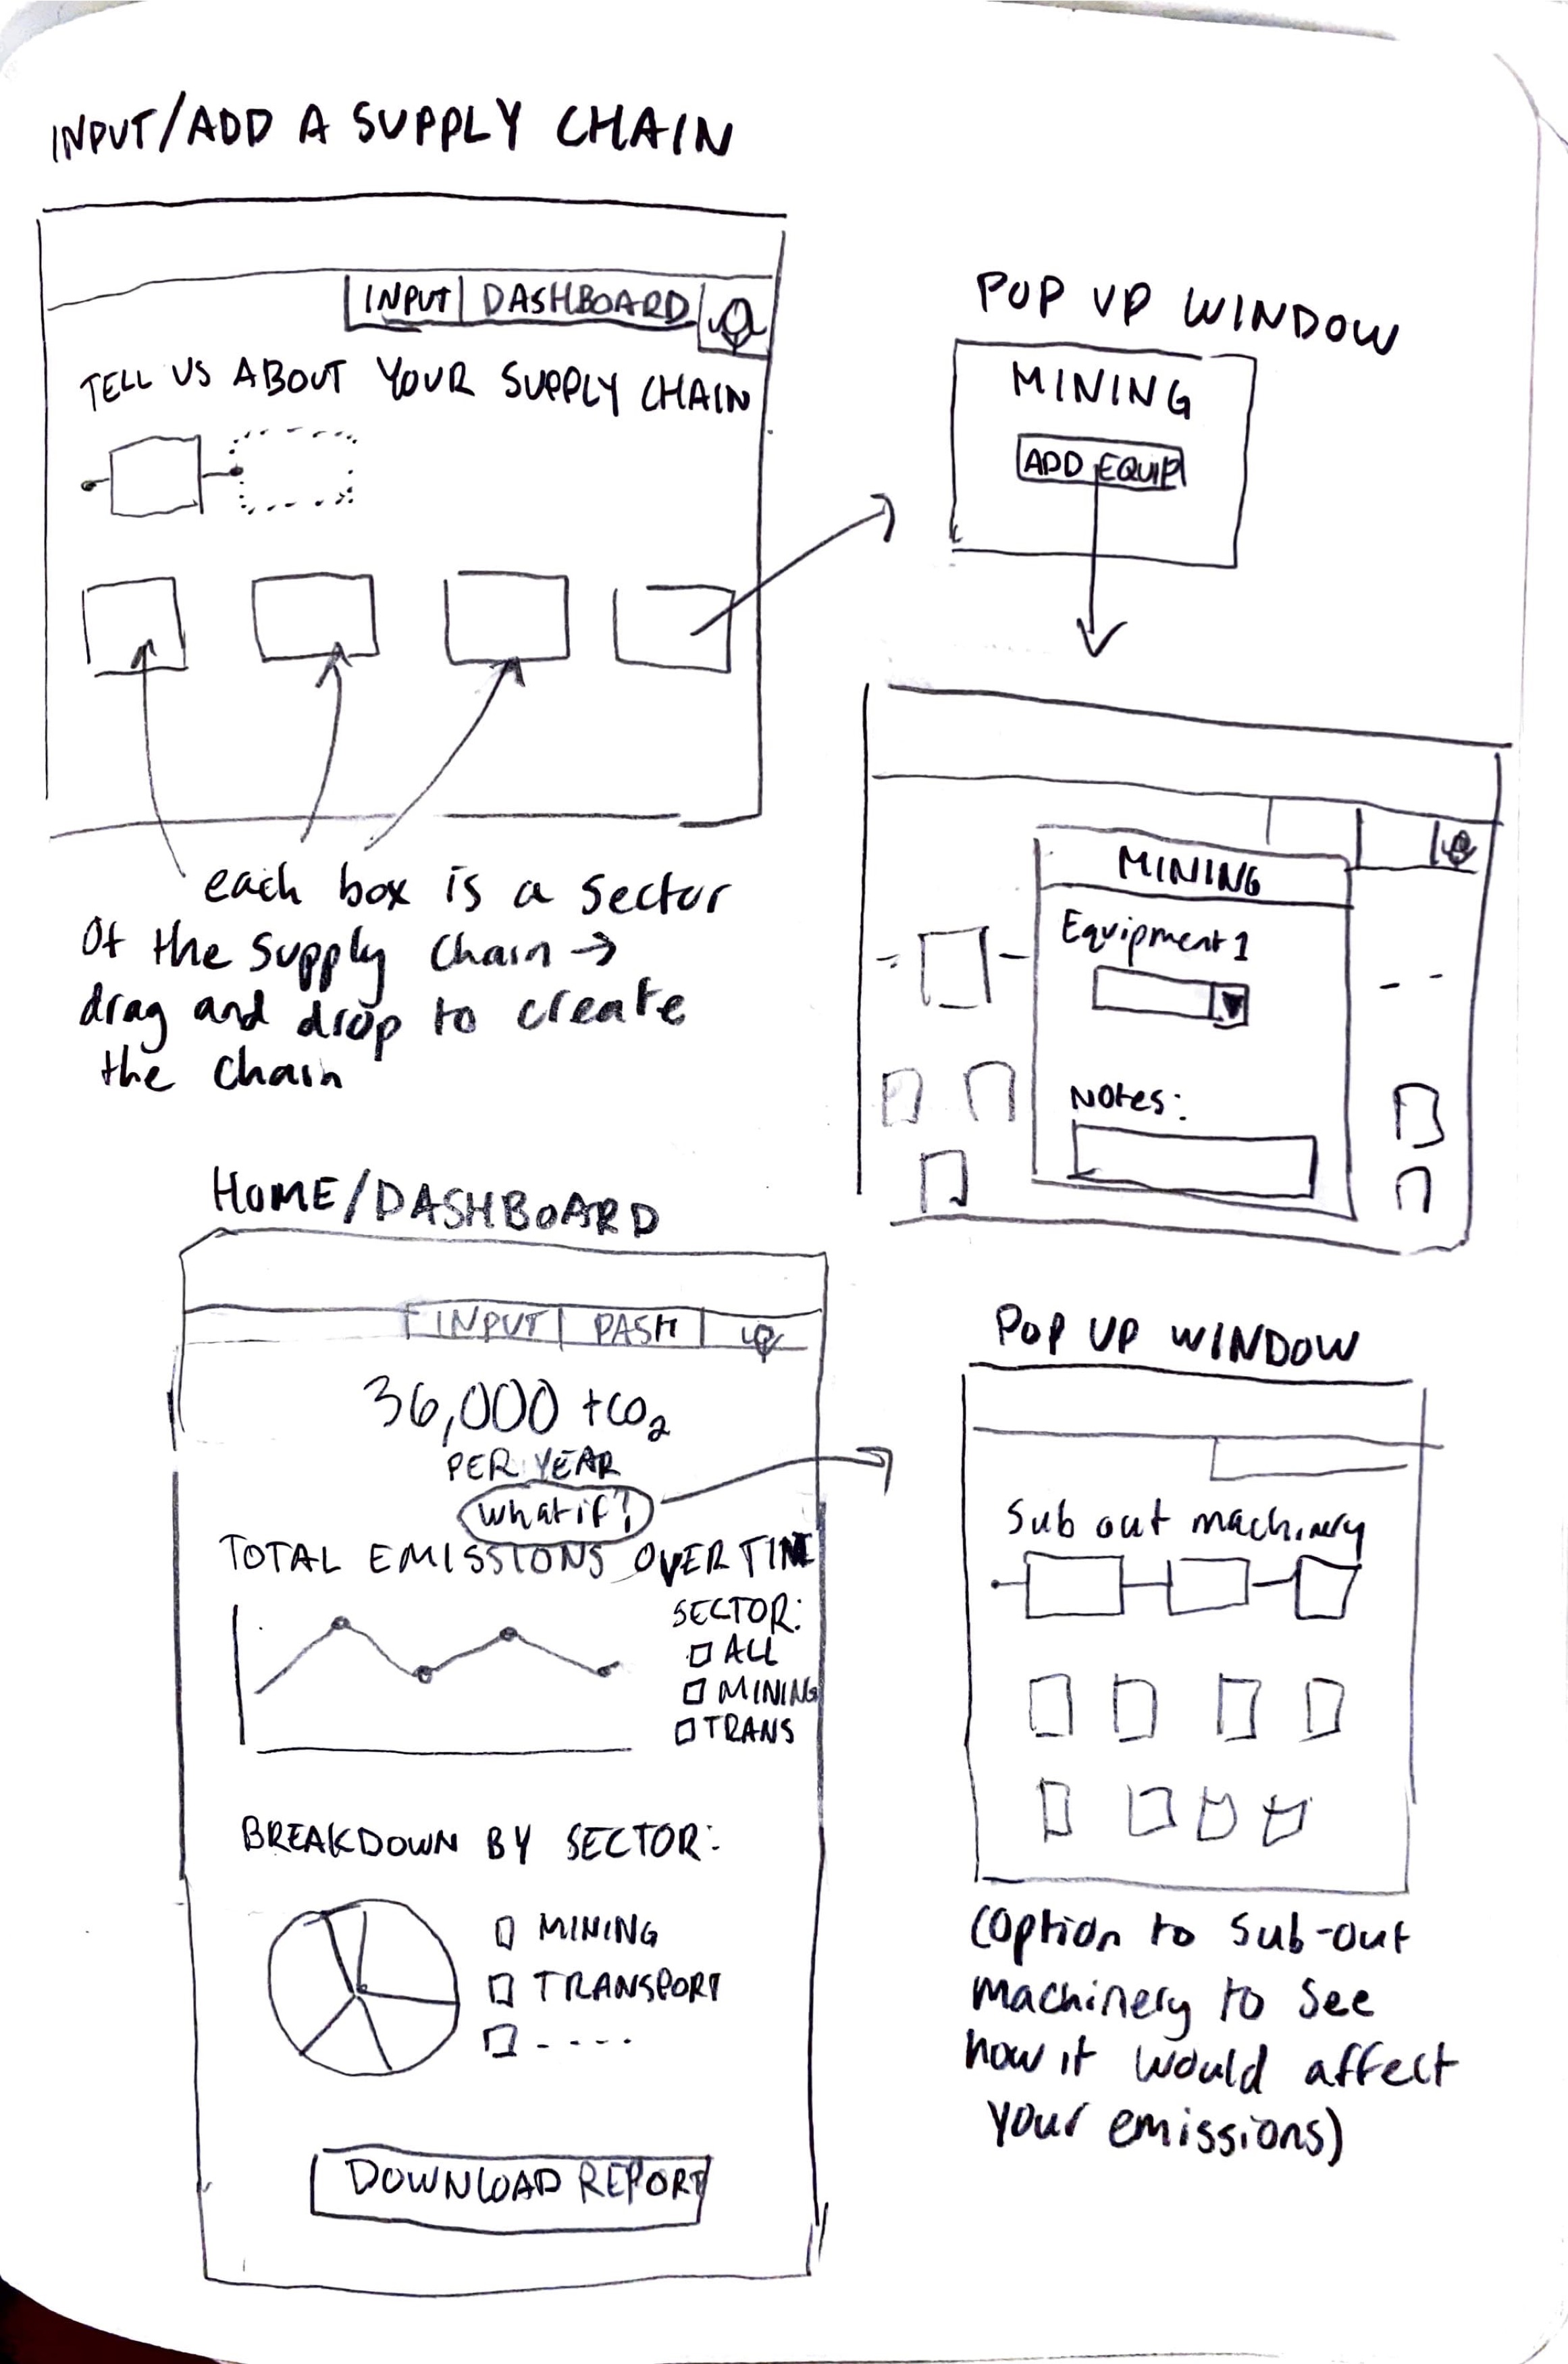 INPUT/ADD A SUPPLY CHAIN
INPUT DASHBOARD
TELL US ABOUT YOUR SUPPLY CHAIN
each box is a sector
of the supply chain →
drag and drop to create
the chain
POP UP WINDOW
MINING
ADD EQUIP
MINING
Equipment 1
Notes:
HOME/DASHBOARD
INPUT DASH
36,000 tCO₂
PER YEAR
What if?
TOTAL EMISSIONS OVER TIME
SECTOR:
ALL
MINING
TRANS
BREAKDOWN BY SECTOR:
MINING
TRANSPORT
- - - -
DOWNLOAD REPORT
POP UP WINDOW
Sub out machinery
(option to sub-out
machinery to see
how it would affect
your emissions)